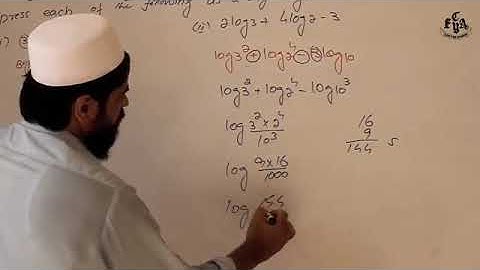 press each of the following as a
(ii) 2log3 + 4log2 - 3
log3² + log2⁴ - 3 log10
log3² + log2⁴ - log10³
log 3² × 2⁴ / 10³
16
9
144
log 9×16 / 1000
log 144